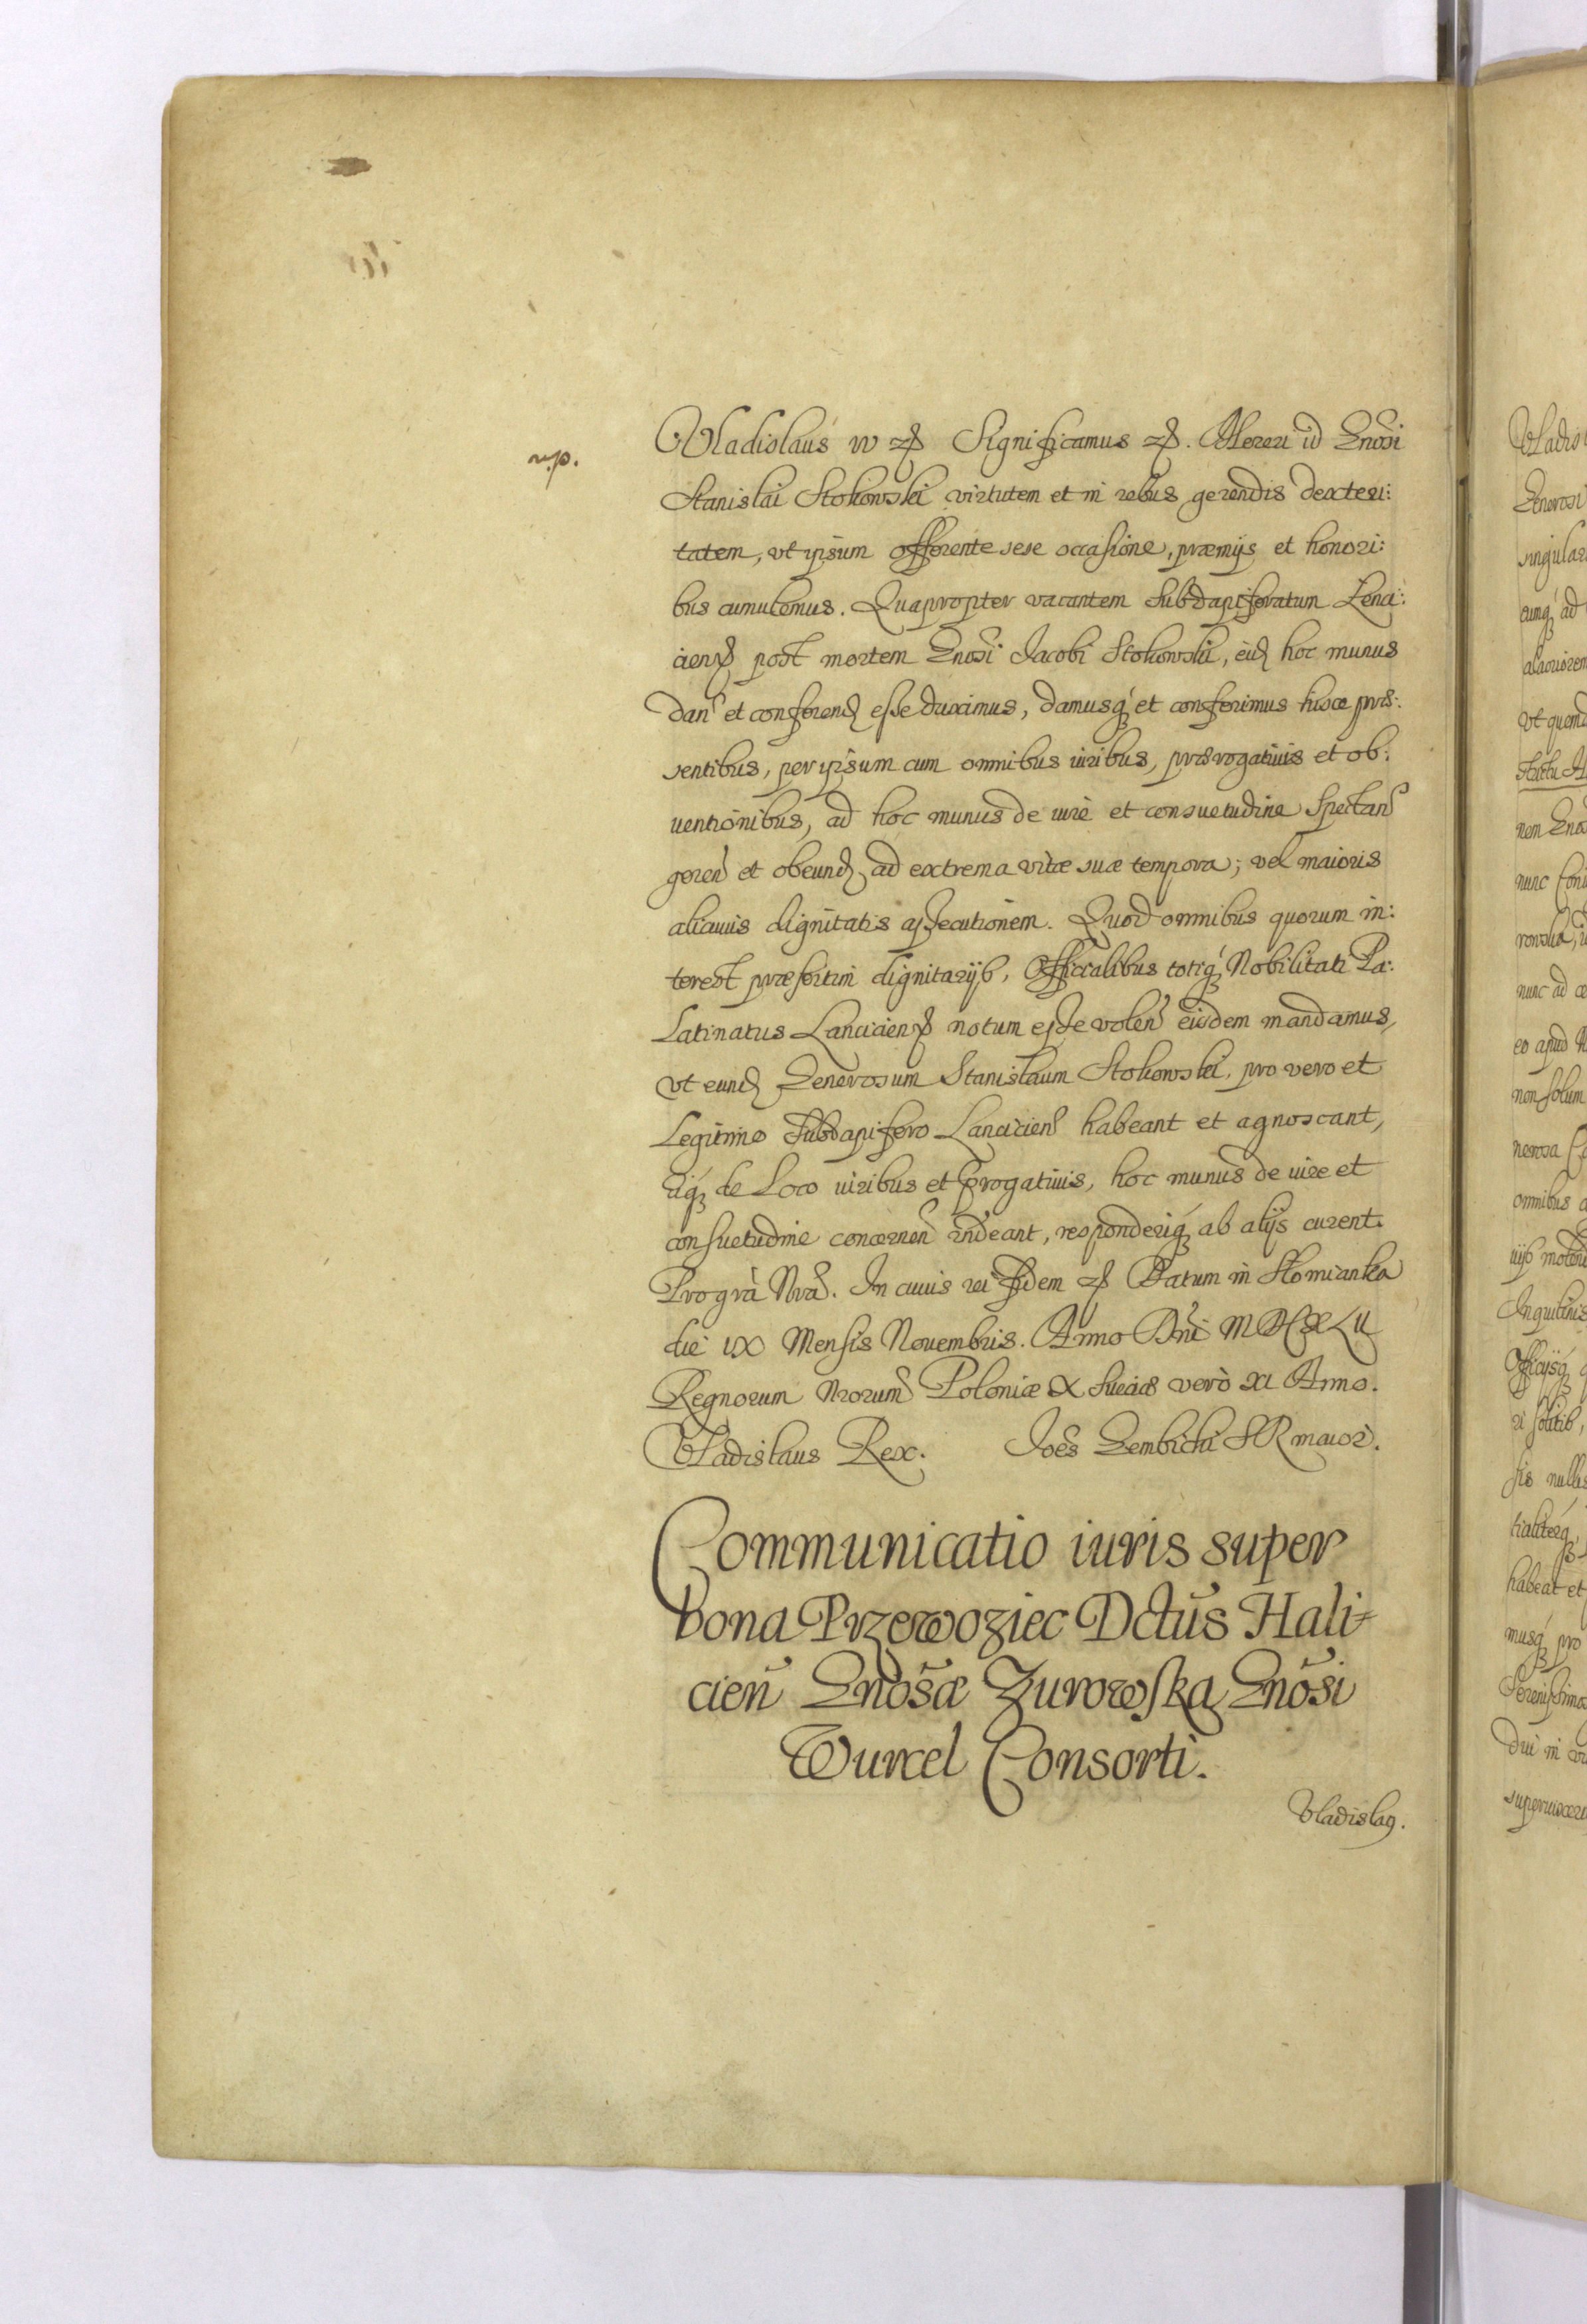 Vladislaus IV etc Significamus etc. Mereri id Gnosi
np.
Stanislai Stokowski virtutem et in rebus gerendis dexteri:
tatem, vt ipsum offerente sese occasione, præmijs et honori:
bus cumulemus. Quapropter vacantem Subdapiferatum Lenci:
cien post mortem Gnosi Jacobi Stokowski, eid hoc munus
dan et conferend esse duximus, damusq et conferimus hisce præ:
sentibus, per ipsum cum omnibus iuribus, prærogatiuis et ob:
uentionibus, ad hoc munus de iure et consuetudine Spectan
geren et obeund ad extrema vitæ suæ tempora; vel maioris
alicuius dignitatis assecutionem. Quod omnibus quorum in:
terest præsertim dignitarijs, Officialibus totiq Nobilitati Pa:
Latinatus Lancicien notum esse volen eisdem mandamus,
vt eund Generosum Stanislaum Stokowski, pro vero et
Legitimo Subdapifero Lancicien habeant et agnoscant,
eiq de Loco iuribus et prrogatiuis, hoc munus de iure et
consuetudine concernen rndeant, responderiq ab alijs curent.
Pro grà Nra. In cuius rei fidem etc Datum in Słomianka
die IX Mensis Nouembris. Anno Dni MDCXLII
Regnorum Nrorum Poloniæ X Sueciæ verò XI Anno.
Vladislaus Rex. Joës Gembicki SR maior.
Communicatio iuris super
bona Przewoziec Dctus Hali-
cien Gnosæ Zurowska Gnosi
Wurcel Consorti.
Vladislaus.
Vladis
Generosi
singular
cumq ad
alacriorem
vt quemd
nunc
nunc ad
eo apud
non solum
nerosa
omnibus
habeat et
musq pro
Serenissimo